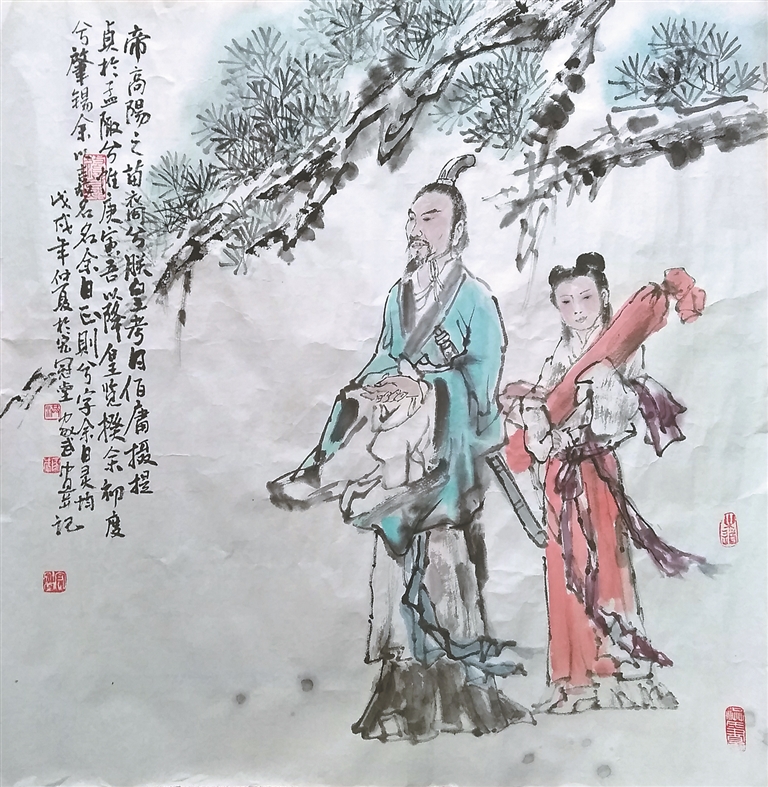 帝高陽之苗裔兮朕皇考曰伯庸摄提
貞於孟陬兮惟庚寅吾以降皇览揆余初度
兮肇锡余以嘉名名余曰正則兮字余曰灵均
戊戌年仲夏於冠堂 记